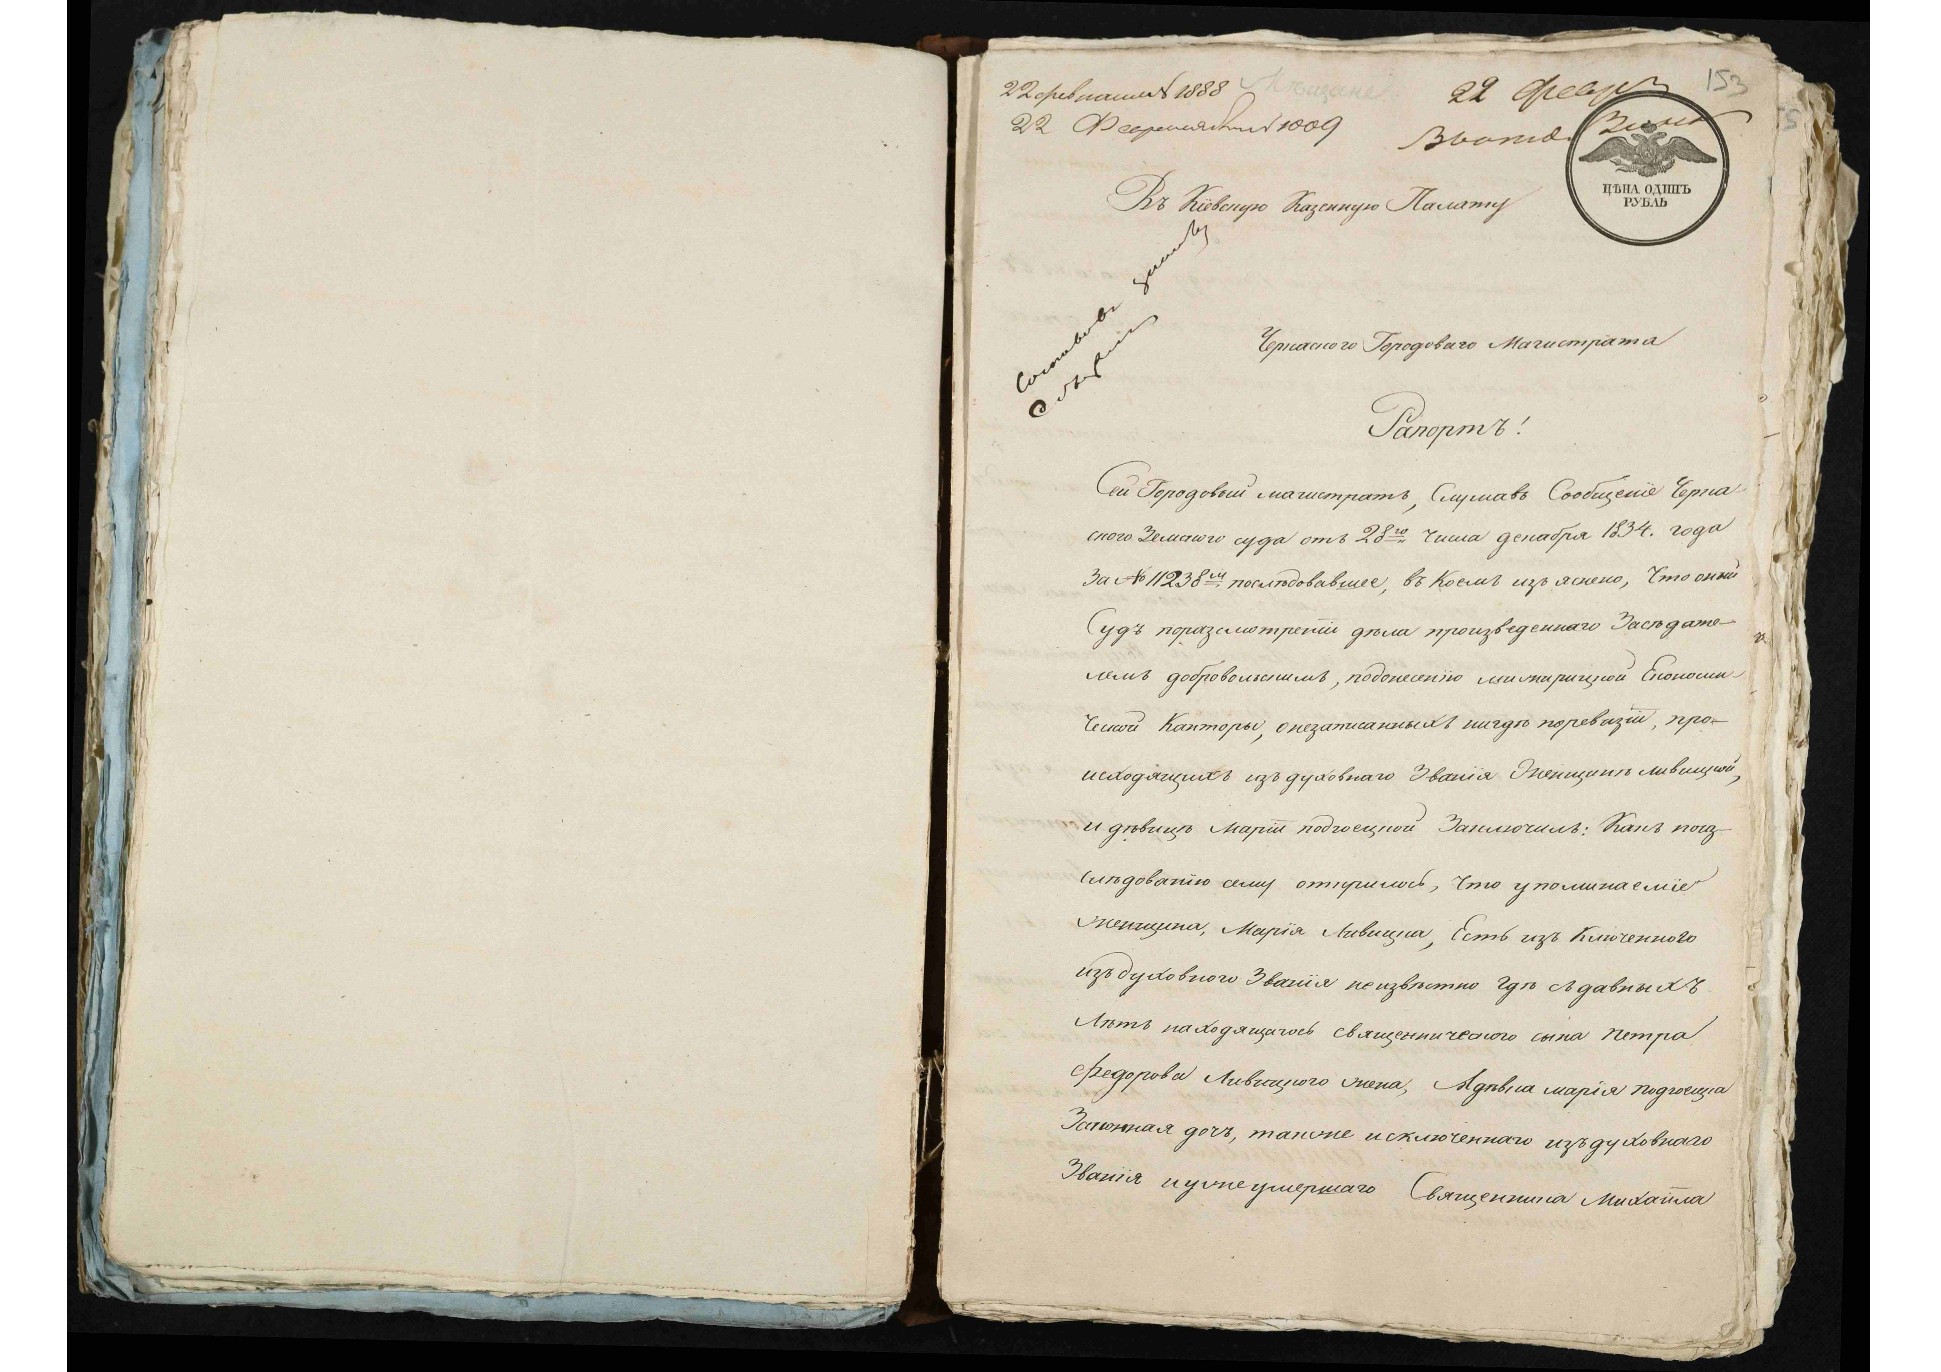 153
22 февраля № 1888
22 Февр
22 Февраля № 1009
ЦѢНА ОДИНЪ
РУБЛЬ
Въ Кіевскую Казенную Палату
Черкаского Городоваго Магистрата
Рапортъ!
Сей Городовый магистратъ, Слушавъ Сообщеніе Черка
ского Земского суда отъ 28го числа декабря 1834. года
За № 11238м послѣдовавшее, въ Коемъ изъяснено, Что оный
Судъ поразсмотреніи дѣла произведеннаго Засѣдате-
лемъ добровольскимъ, подонесенію межирицкой Економи-
ческой Канторы, онезаписанныхъ нигдѣ поревизіи, про-
исходящихъ изъ духовнаго Званія Женщинѣ Ливицкой,
и дѣвицѣ Маріи подгоецкой Заключилъ: Какъ поиз-
слѣдованію сему открилось, Что упоминаеміе
женщина, Марія Ливицка, Есть изъ Ключенного
изъ духовного Званія неизвѣстно гдѣ съдавныхъ
Лѣтъ находящагось священнического сына петра
Федорова Ливицкого жена, Адѣвка марія подгоецка
Законная дочъ, также исключеннаго изъ духовнаго
Званія иужеумершаго Священника Михаила